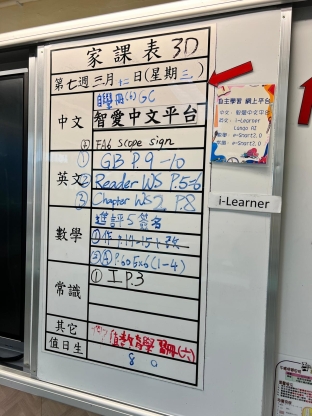 家課表 3D
第七週三月十二日(星期三)
中文
自學冊(六)GC
智愛中文平台
FA6 scope sign
英文
① GB P.9-10
② Reader WS P.5-6
③ Chapter WS 2 P.8
數學
進評5 簽名
P.14-15 + 改
605x6(1-4)
常識
① 工P.3
其它
值日生
8
自主學習 網上平台
中文：智愛中文平台
英文：i-Learner
Lango AI
數學：e-Smart2.0
常識：e-Smart2.0
i-Learner